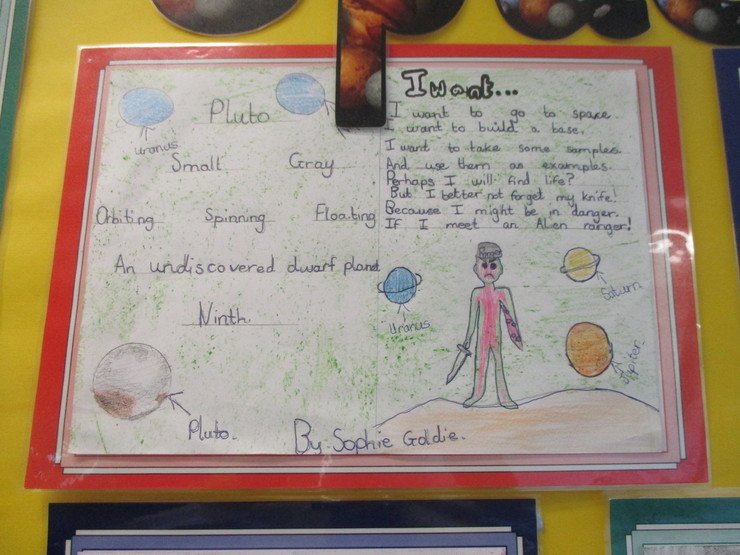 Pluto
Uranus
Small Gray
Orbiting Spinning Floating
An undiscovered dwarf planet
Ninth
Pluto.
By Sophie Goldie.
I want...
I want to go to space.
I want to build a base.
I want to take some samples.
And use them as examples.
Perhaps I will find life?
But I better not forget my knife!
Because I might be in danger.
If I meet an Alien ranger!
Uranus
Saturn
Jupiter